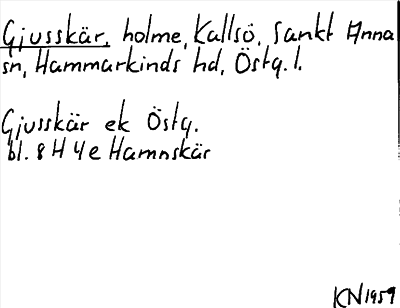 Gjusskär, holme, Kallsö, Sankt Anna
sn, Hammarkinds hd, Östg. l.
Gjusskär ek Östg.
bl. 8 H 4 e Hamnskär
KN 1959